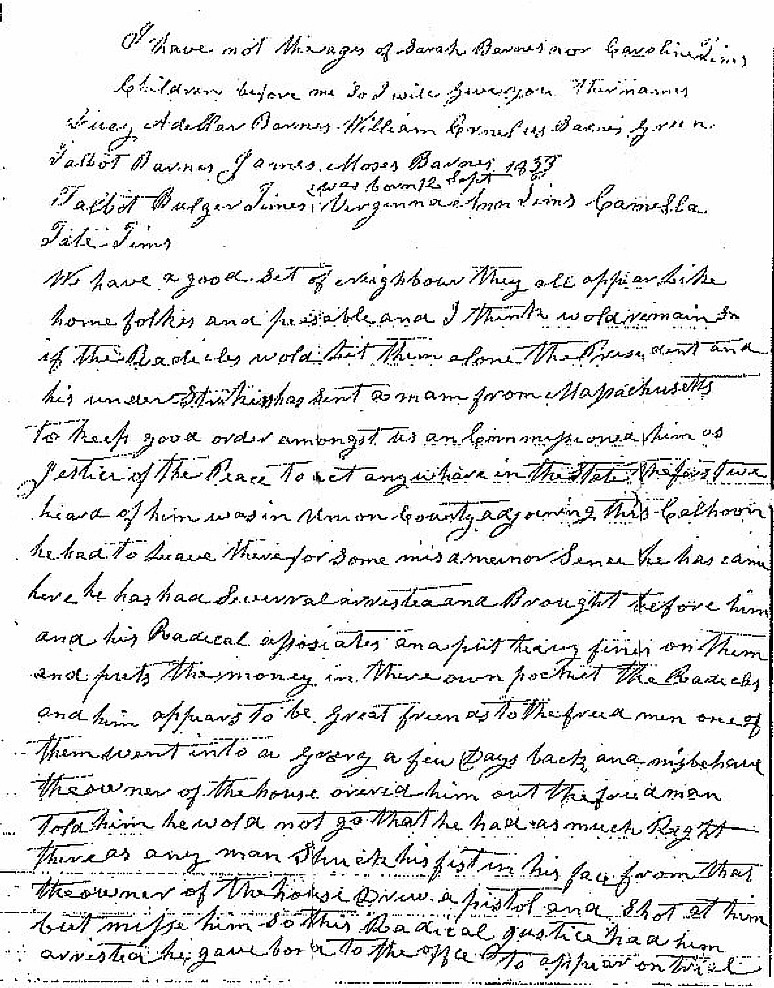 I have not the ages of Sarah Barnes nor Caroline Tims
Children before me So I will give you Ther names
Adellar Barnes William Cornelius Barnes Green
Talbot Barnes James Moses Barnes 1833
was born 12 Sept
Talbot Bulger Times Virginna Ann Tims Camella
Tate Tims
We have a good Set of Neighbour they all appear Like
home folkes and and I think wold remain So
if the Radicles wold Let them alone the President and
his under has Sent a man from Massachusetts
To keep good order amongst us an Commissioned him as
Jestice of the Peace To act anywhare in the State the first we
heard of him was in Union County adjoining this Calhoun
he had to Leave there for Some misameinor Since he has came
here he has had Severral arrested and Brought before him
and his Radical assosiates and put heavy fines on them
and puts the money in there own pocket the Radicles
and him appears to be great friends to the freed men one of
them went into a a few Days back and misbehave
the owner of the house orered him out the freedman
Told him he wold not go that he had as much Right
there as any man Shuck his fist in his face from that
the owner of the house Drew a pistol and Shot at him
but misse him So this Radical justice had him
arrested he gave bond to the office To appear on trial